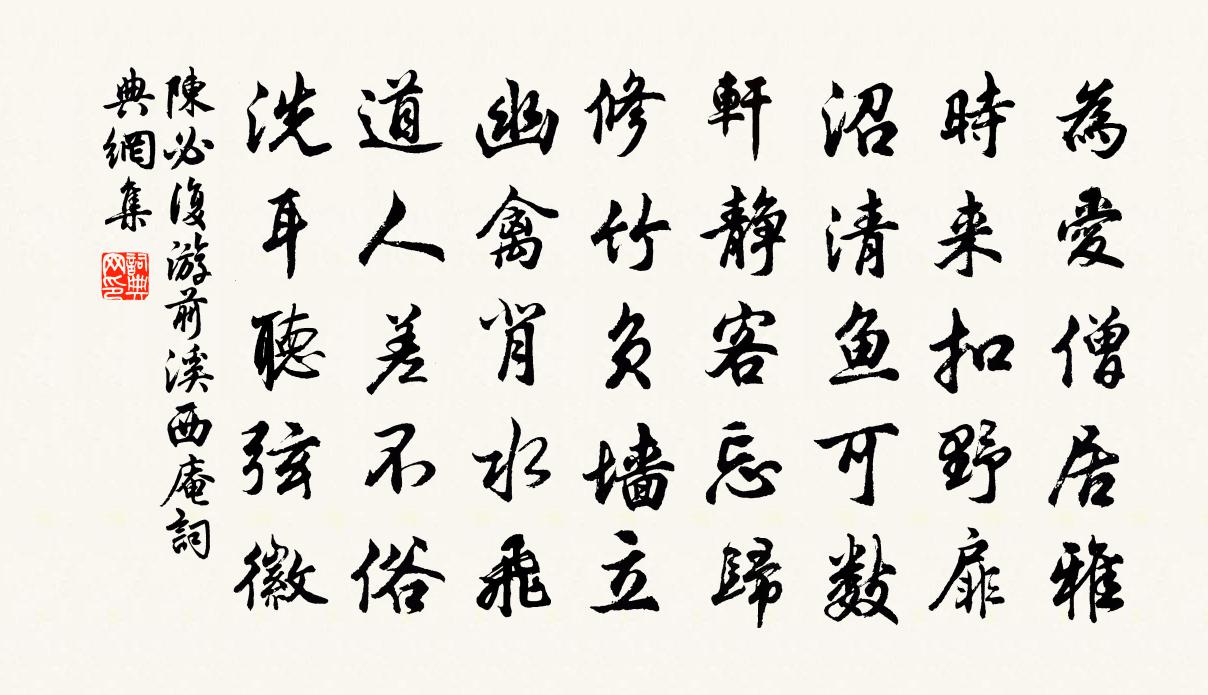 為愛僧居雅
時来扣野扉
沼清鱼可數
軒静客忘歸
修竹負墙立
幽禽背水飛
道人差不俗
洗耳聽弦徽
陳必復游前溪西庵詞
典網集
詞典
网印